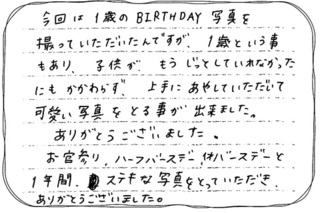 今回は1歳のBIRTHDAY写真を
撮っていただいたんですが、1歳という事
もあり、子供が、もうじっとしていれなかった
にもかかわらず、上手にあやしていただいて
可愛い写真をとる事が出来ました。
ありがとうございました。
お宮参り、ハーフバースデー、バースデーと
1年間、ステキな写真をとっていただき、
ありがとうございました。